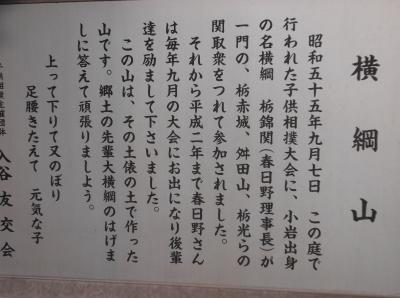 横綱山
昭和五十五年九月七日　この庭で
行われた子供相撲大会に、小岩出身
の名横綱　栃錦関(春日野理事長)が
一門の、栃赤城、舛田山、栃光らの
関取衆をつれて参加されました。
それから平成二年まで春日野さん
は毎年九月の大会にお出になり後輩
達を励まして下さいました。
この山は、その土俵の土で作った
山です。郷土の先輩大横綱のはげま
しに答えて頑張りましょう。
上って下りて又のぼり
足腰きたえて　元気な子
入谷友交会